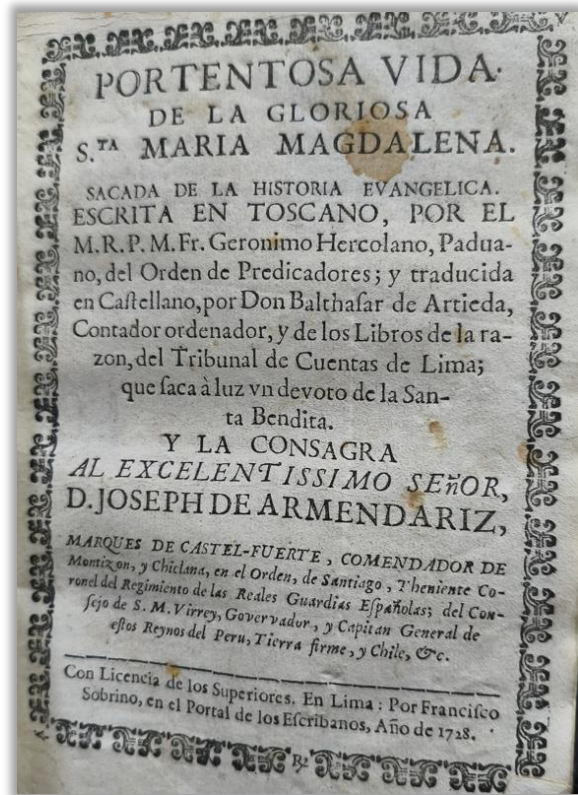 PORTENTOSA VIDA
DE LA GLORIOSA
S.TA MARIA MAGDALENA.
SACADA DE LA HISTORIA EVANGELICA.
ESCRITA EN TOSCANO, POR EL
M.R.P.M.Fr. Geronimo Hercolano, Padua-
no, del Orden de Predicadores; y traducida
en Caſtellano, por Don Balthaſar de Artieda,
Contador ordenador, y de los Libros de la ra-
zon, del Tribunal de Cuentas de Lima;
que ſaca à luz vn devoto de la San-
ta Bendita.
Y LA CONSAGRA
AL EXCELENTISSIMO SEñOR,
D. JOSEPH DE ARMENDARIZ,
MARQUES DE CASTEL-FUERTE, COMENDADOR DE
Montizon, y Chiclana, en el Orden, de Santiago, Theniente Co-
ronel del Regimiento de las Reales Guardias Eſpañolas; del Con-
ſejo de S. M. Virrey, Governador, y Capitan General de
eſtos Reynos del Peru, Tierra firme, y Chile, &c.
Con Licencia de los Superiores. En Lima: Por Franciſco
Sobrino, en el Portal de los Eſcribanos, Año de 1728.